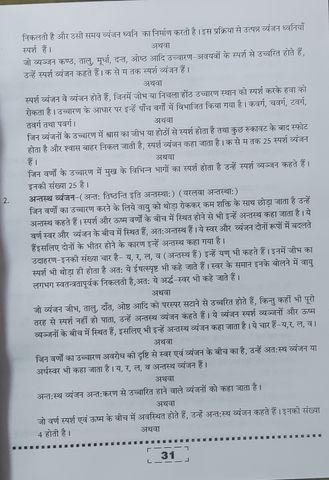 निकलती है और उसी समय व्यंजन ध्वनि का निर्माण करती है। इस प्रक्रिया से उत्पन्न व्यंजन ध्वनियाँ
स्पर्श हैं ।
अथवा
जो व्यञ्जन कण्ठ, तालु, मूर्धा, दन्त, ओष्ठ आदि उच्चारण-अवयवों के स्पर्श से उच्चरित होते हैं,
उन्हें स्पर्श व्यंजन कहते हैं। क से म तक स्पर्श व्यंजन हैं।
अथवा
स्पर्श व्यंजन वे व्यंजन होते हैं, जिनमें जीभ या निचला होंठ उच्चारण स्थान को स्पर्श करके हवा को
रोकता है। उच्चारण के आधार पर इन्हें पाँच वर्गों में विभाजित किया गया है । कवर्ग, चवर्ग, टवर्ग,
तवर्ग तथा पवर्ग।
जिन व्यंजनों के उच्चारण में श्वास का जीभ या होठों से स्पर्श होता है तथा कुछ रुकावट के बाद स्फोट
होता है और श्वास बाहर निकल जाती है, स्पर्श व्यंजन कहा जाता है। क से म तक 25 स्पर्श व्यंजन
हैं ।
जिन वर्णों के उच्चारण में मुख के विभिन्न भागों का स्पर्श होता है उन्हें स्पर्श व्यञ्जन कहते हैं।
इनकी संख्या 25 है।
2. अन्तस्थ व्यंजन-(अन्त: तिष्ठन्ति इति अन्तस्था:) (यरलवा अन्तस्था:)
जिन वर्णों का उच्चारण करने के लिये वायु को थोड़ा रोककर कम शक्ति के साथ छोड़ा जाता है उन्हें
अन्तस्थ कहते हैं। स्पर्श और ऊष्म वर्णों के बीच में स्थित होने से भी इन्हें अन्तस्थ कहा जाता है। ये
वर्ण स्वर और व्यंजन के बीच में स्थित हैं, अत:अन्तस्थ हैं। ये स्वर और व्यंजन दोनों रूपों में बदलते
हैंइसलिए दोनों के भीतर होने के कारण इन्हें अन्तस्थ कहा गया है।
उदाहरण-इनकी संख्या चार है- य, र, ल, व (अन्तस्थ हैं) इन्हें यण् भी कहते हैं। इनमें जीभ का
स्पर्श भी थोड़ा ही होता है अत: ये ईषत्स्पृष्ट भी कहे जाते हैं। स्वर के समान इनके बोलने में वायु
लगभग स्वतन्त्रतापूर्वक निकलती है,अत: ये अर्द्ध-स्वर भी कहे जाते हैं।
अथवा
जो व्यंजन जीभ, तालु, दाँत, ओष्ठ आदि को परस्पर सटाने से उच्चरित होते हैं, किन्तु कहीं भी पूरी
तरह से स्पर्श नहीं हो पाता, उन्हें अन्तस्थ व्यंजन कहते हैं। ये व्यंजन स्पर्श व्यञ्जनों और ऊष्म
व्यञ्जनों के बीच में स्थित हैं, इसलिए भी इन्हें अन्तस्थ व्यंजन कहा जाता है। ये चार हैं-य, र, ल, व।
अथवा
जिन वर्णों का उच्चारण अवरोध की दृष्टि से स्वर एवं व्यंजन के बीच का है, उन्हें अत:स्थ व्यंजन या
अर्धस्वर भी कहा जाता है। य, र, ल, व अन्तस्थ व्यंजन हैं।
अथवा
अन्त:स्थ व्यंजन अन्त:करण से उच्चारित होने वाले व्यंजनों को कहा जाता है ।
अथवा
जो वर्ण स्पर्श एवं ऊष्म के बीच में अवस्थित होते हैं, उन्हें अन्त:स्थ व्यंजन कहते हैं । इनकी संख्या
4 होती है ।
अथवा
31